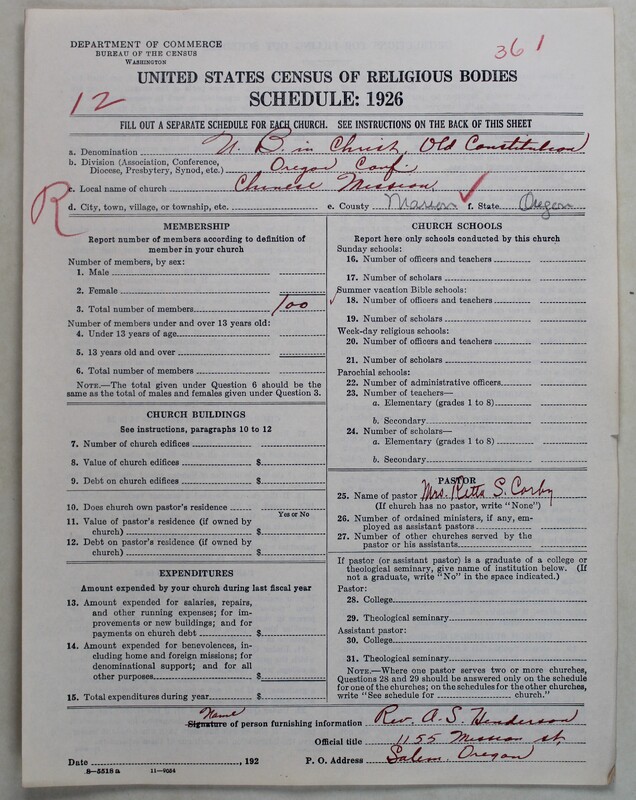 DEPARTMENT OF COMMERCE
BUREAU OF THE CENSUS
WASHINGTON
361
UNITED STATES CENSUS OF RELIGIOUS BODIES
12
SCHEDULE: 1926
FILL OUT A SEPARATE SCHEDULE FOR EACH CHURCH. SEE INSTRUCTIONS ON THE BACK OF THIS SHEET
a. Denomination U. B. in Christ, Old Constitution
b. Division (Association, Conference, Diocese, Presbytery, Synod, etc.) Oregon Conf.
c. Local name of church Chinese Mission
R
d. City, town, village, or township, etc. e. County Marion f. State Oregon
MEMBERSHIP
Report number of members according to definition of
member in your church
Number of members, by sex:
1. Male
2. Female
3. Total number of members 100
Number of members under and over 13 years old:
4. Under 13 years of age
5. 13 years old and over
6. Total number of members
NOTE.—The total given under Question 6 should be
same as the total of males and females given under Question 3.
CHURCH BUILDINGS
See instructions, paragraphs 10 to 12
7. Number of church edifices
8. Value of church edifices $
9. Debt on church edifices $
10. Does church own pastor's residence
Yes or No
11. Value of pastor's residence (if owned by
church) $
12. Debt on pastor's residence (if owned by
church) $
EXPENDITURES
Amount expended by your church during last fiscal year
13. Amount expended for salaries, repairs,
and other running expenses; for im-
provements or new buildings; and for
payments on church debt $
14. Amount expended for benevolences, in-
cluding home and foreign missions; for
denominational support; and for all
other purposes $
15. Total expenditures during year $
CHURCH SCHOOLS
Report here only schools conducted by this church
Sunday schools:
16. Number of officers and teachers
17. Number of scholars
Summer vacation Bible schools:
18. Number of officers and teachers
19. Number of scholars
Week-day religious schools:
20. Number of officers and teachers
21. Number of scholars
Parochial schools:
22. Number of administrative officers
23. Number of teachers—
a. Elementary (grades 1 to 8)
b. Secondary
24. Number of scholars—
a. Elementary (grades 1 to 8)
b. Secondary
PASTOR
25. Name of pastor Mrs. Retta S. Corby
(If church has no pastor, write "None")
26. Number of ordained ministers, if any, em-
ployed as assistant pastors
27. Number of other churches served by the
pastor or his assistants
If pastor (or assistant pastor) is a graduate of a college or
theological seminary, give name of institution below. (If
not a graduate, write "No" in the space indicated.)
Pastor:
28. College
29. Theological seminary
Assistant pastor:
30. College
31. Theological seminary
NOTE.—Where one pastor serves two or more churches,
Questions 28 and 29 should be answered only on the schedule
for one of the churches; on the schedules for the other churches,
write "See schedule for church."
Name
Signature of person furnishing information Rev. A. S. Henderson
Official title 1155 Mission st,
Date , 192 P. O. Address Salem Oregon
8—5518 a 11—9054